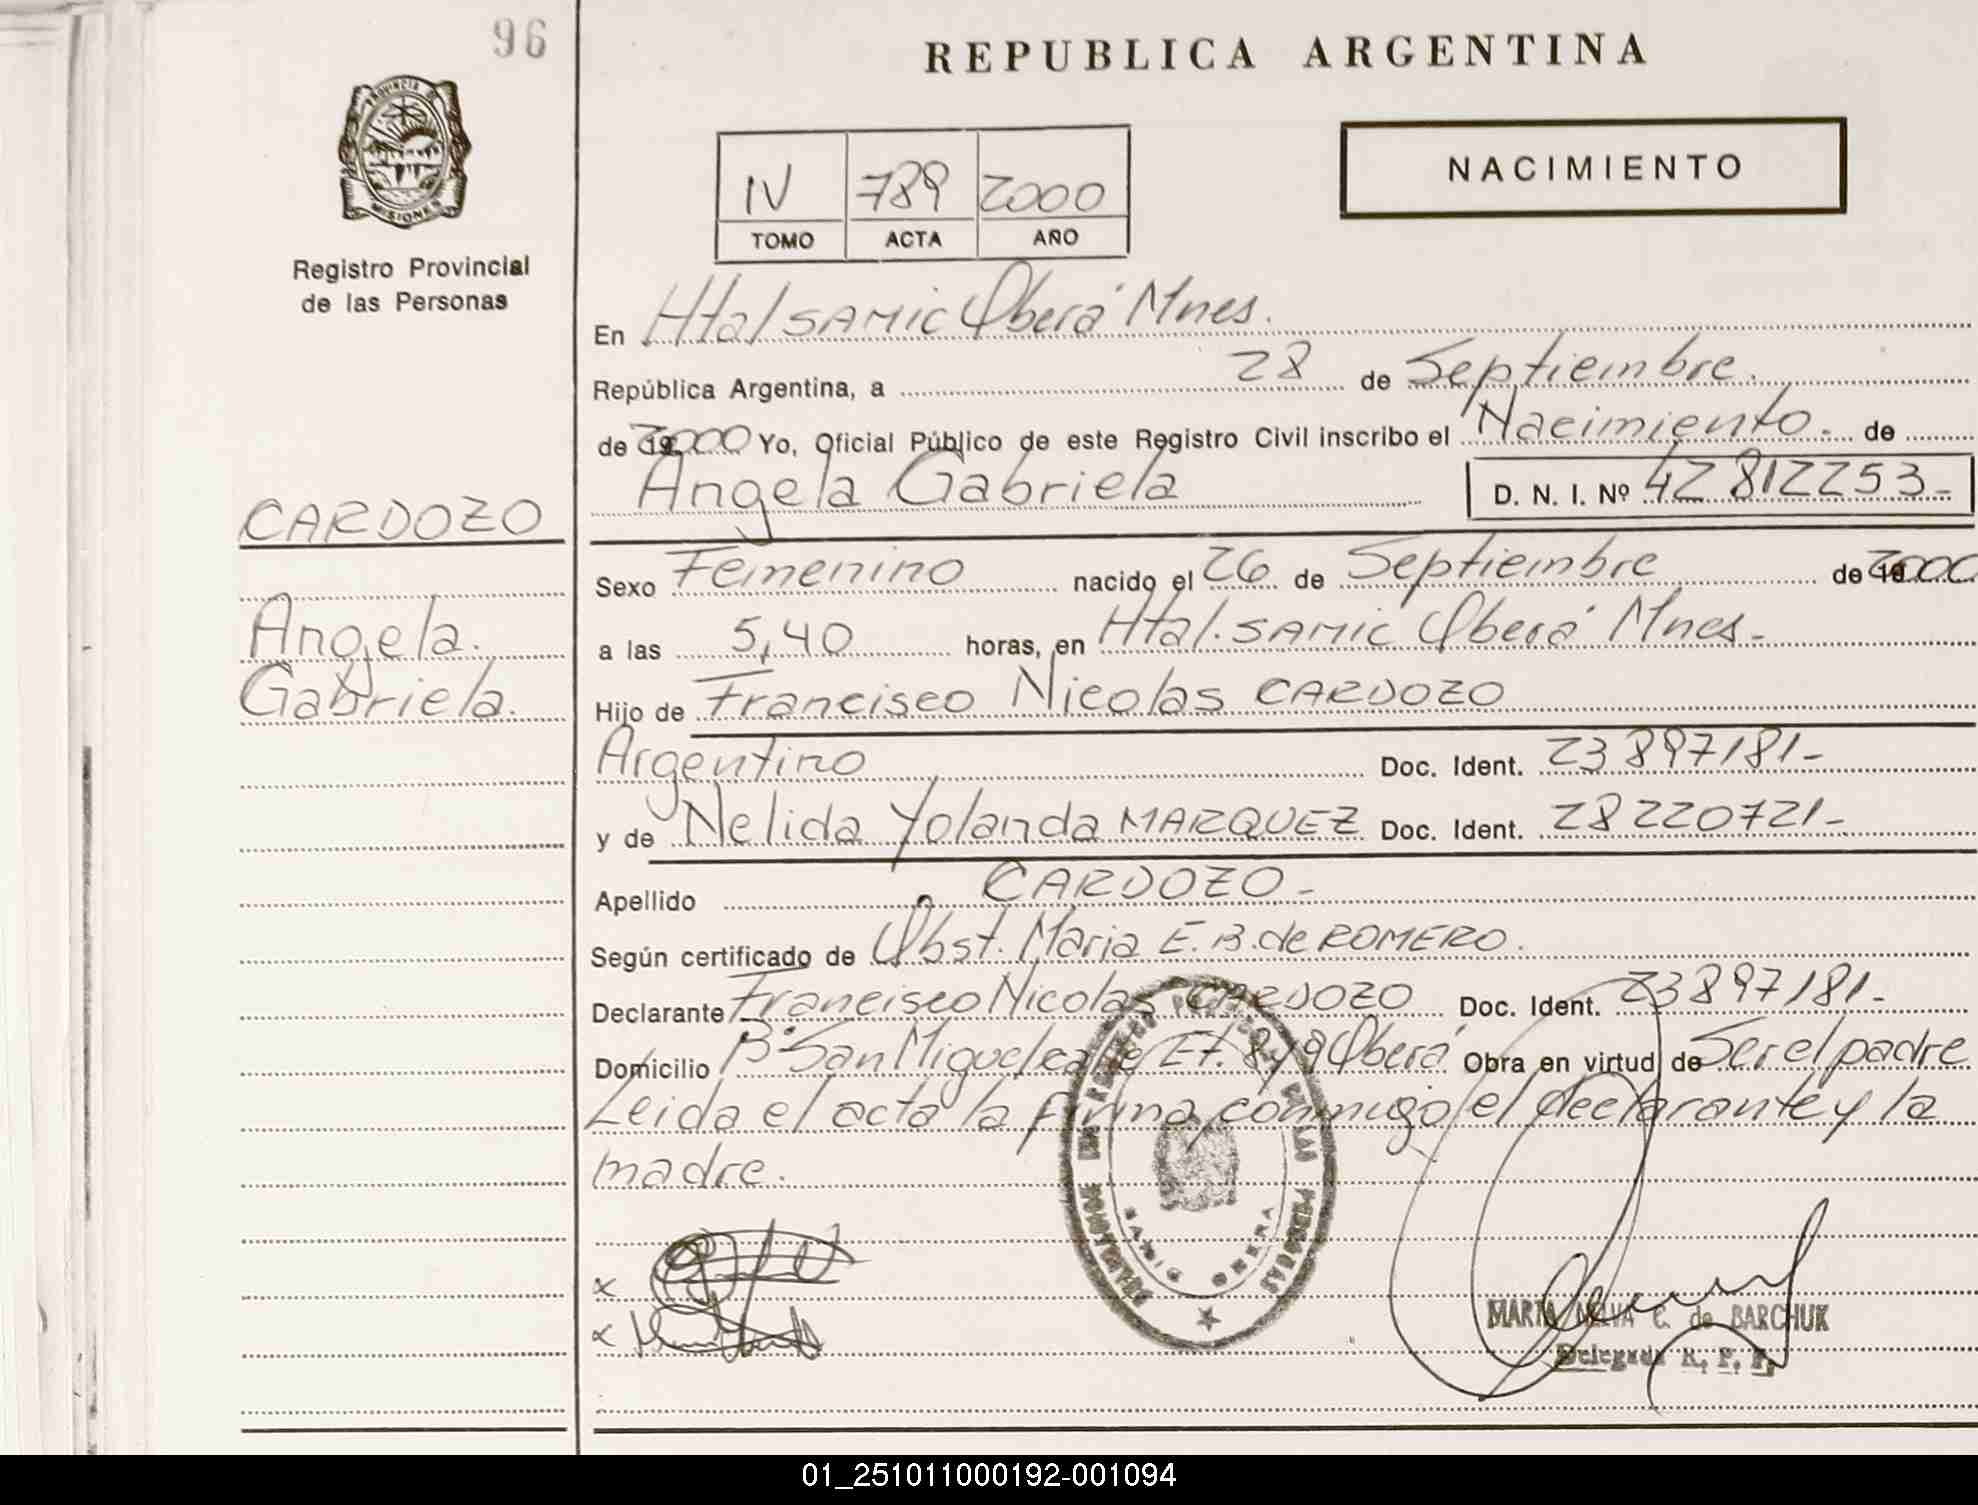 96
REPUBLICA ARGENTINA
PROVINCIA DE
MISIONES
Registro Provincial
de las Personas
NACIMIENTO
IV 789 2000
TOMO ACTA AÑO
En Htal SAMIC Oberá Mnes.
República Argentina, a 28 de Septiembre.
de 2000 Yo, Oficial Público de este Registro Civil inscribo el Nacimiento. de
Angela Gabriela D. N. I. Nº 42 812253-
CARDOZO
Angela.
Gabriela.
Sexo Femenino nacido el 26 de Septiembre de 2000
a las 5,40 horas, en Htal. SAMIC Oberá Mnes-
Hijo de Francisco Nicolas CARDOZO
Argentino Doc. Ident. 23 897181-
y de Nelida Yolanda MARQUEZ Doc. Ident. 28 220721-
Apellido CARDOZO-
Según certificado de Obst. Maria E. B. de ROMERO.
Declarante Francisco Nicolas CARDOZO Doc. Ident. 23897181-
Domicilio Bº San Miguel calle Et. 8 y 9 Oberá Obra en virtud de Ser el padre
Leida el acta la firma conmigo el declarante y la
madre.
x
x
SAMIC OBERA
MARTA C. de BARCHUK
Delegada R. P. P.
01_251011000192-001094